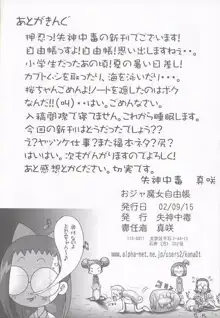 あとがきんぐ
押忍!失神中毒の新刊でございます!
自由帳っすよ!自由帳!思い出しますねぇ…。
小学生だったあの頃!夏の暑い日差し!
カブトムシを取ったり、海を泳いだり…。
桜ちゃんごめんよ!ノートを隠したのはボク
なんだッ!!(叫)…はぁ。ごめんなさい。
入稿間際で寝てません。これから睡眠します。
今回の新刊はとうだったでしょう?
次もがんばりますのでよろしく!
あと感想とかください。切実です。
失神中毒 真咲
おジャ魔女自由帳
発行日 02/09/15
発行 失神中毒
責任者 真咲